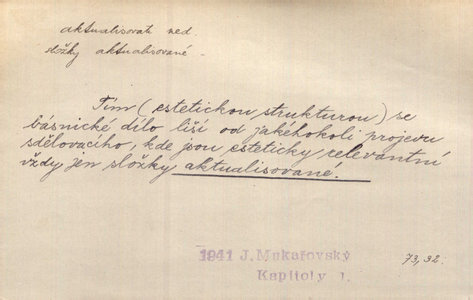 aktualisovati ned.
složky aktualisované.
Tím (estetickou strukturou) se
básnické dílo liší od jakéhokoli projevu
sdělovacího, kde jsou esteticky relevantní
vždy jen složky aktualisované.
1941 J. Mukařovský
Kapitoly I.
73, 32.